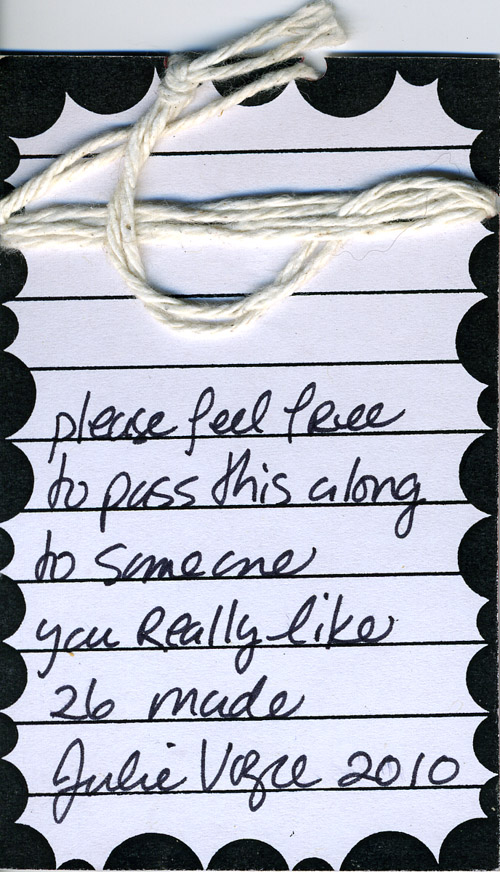 please feel free
to pass this along
to someone
you Really like
26 made
Julie
2010